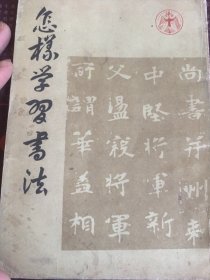 怎樣学習書法
尚書并州
中堅將軍新
父盪寇將軍
所謂華盖相